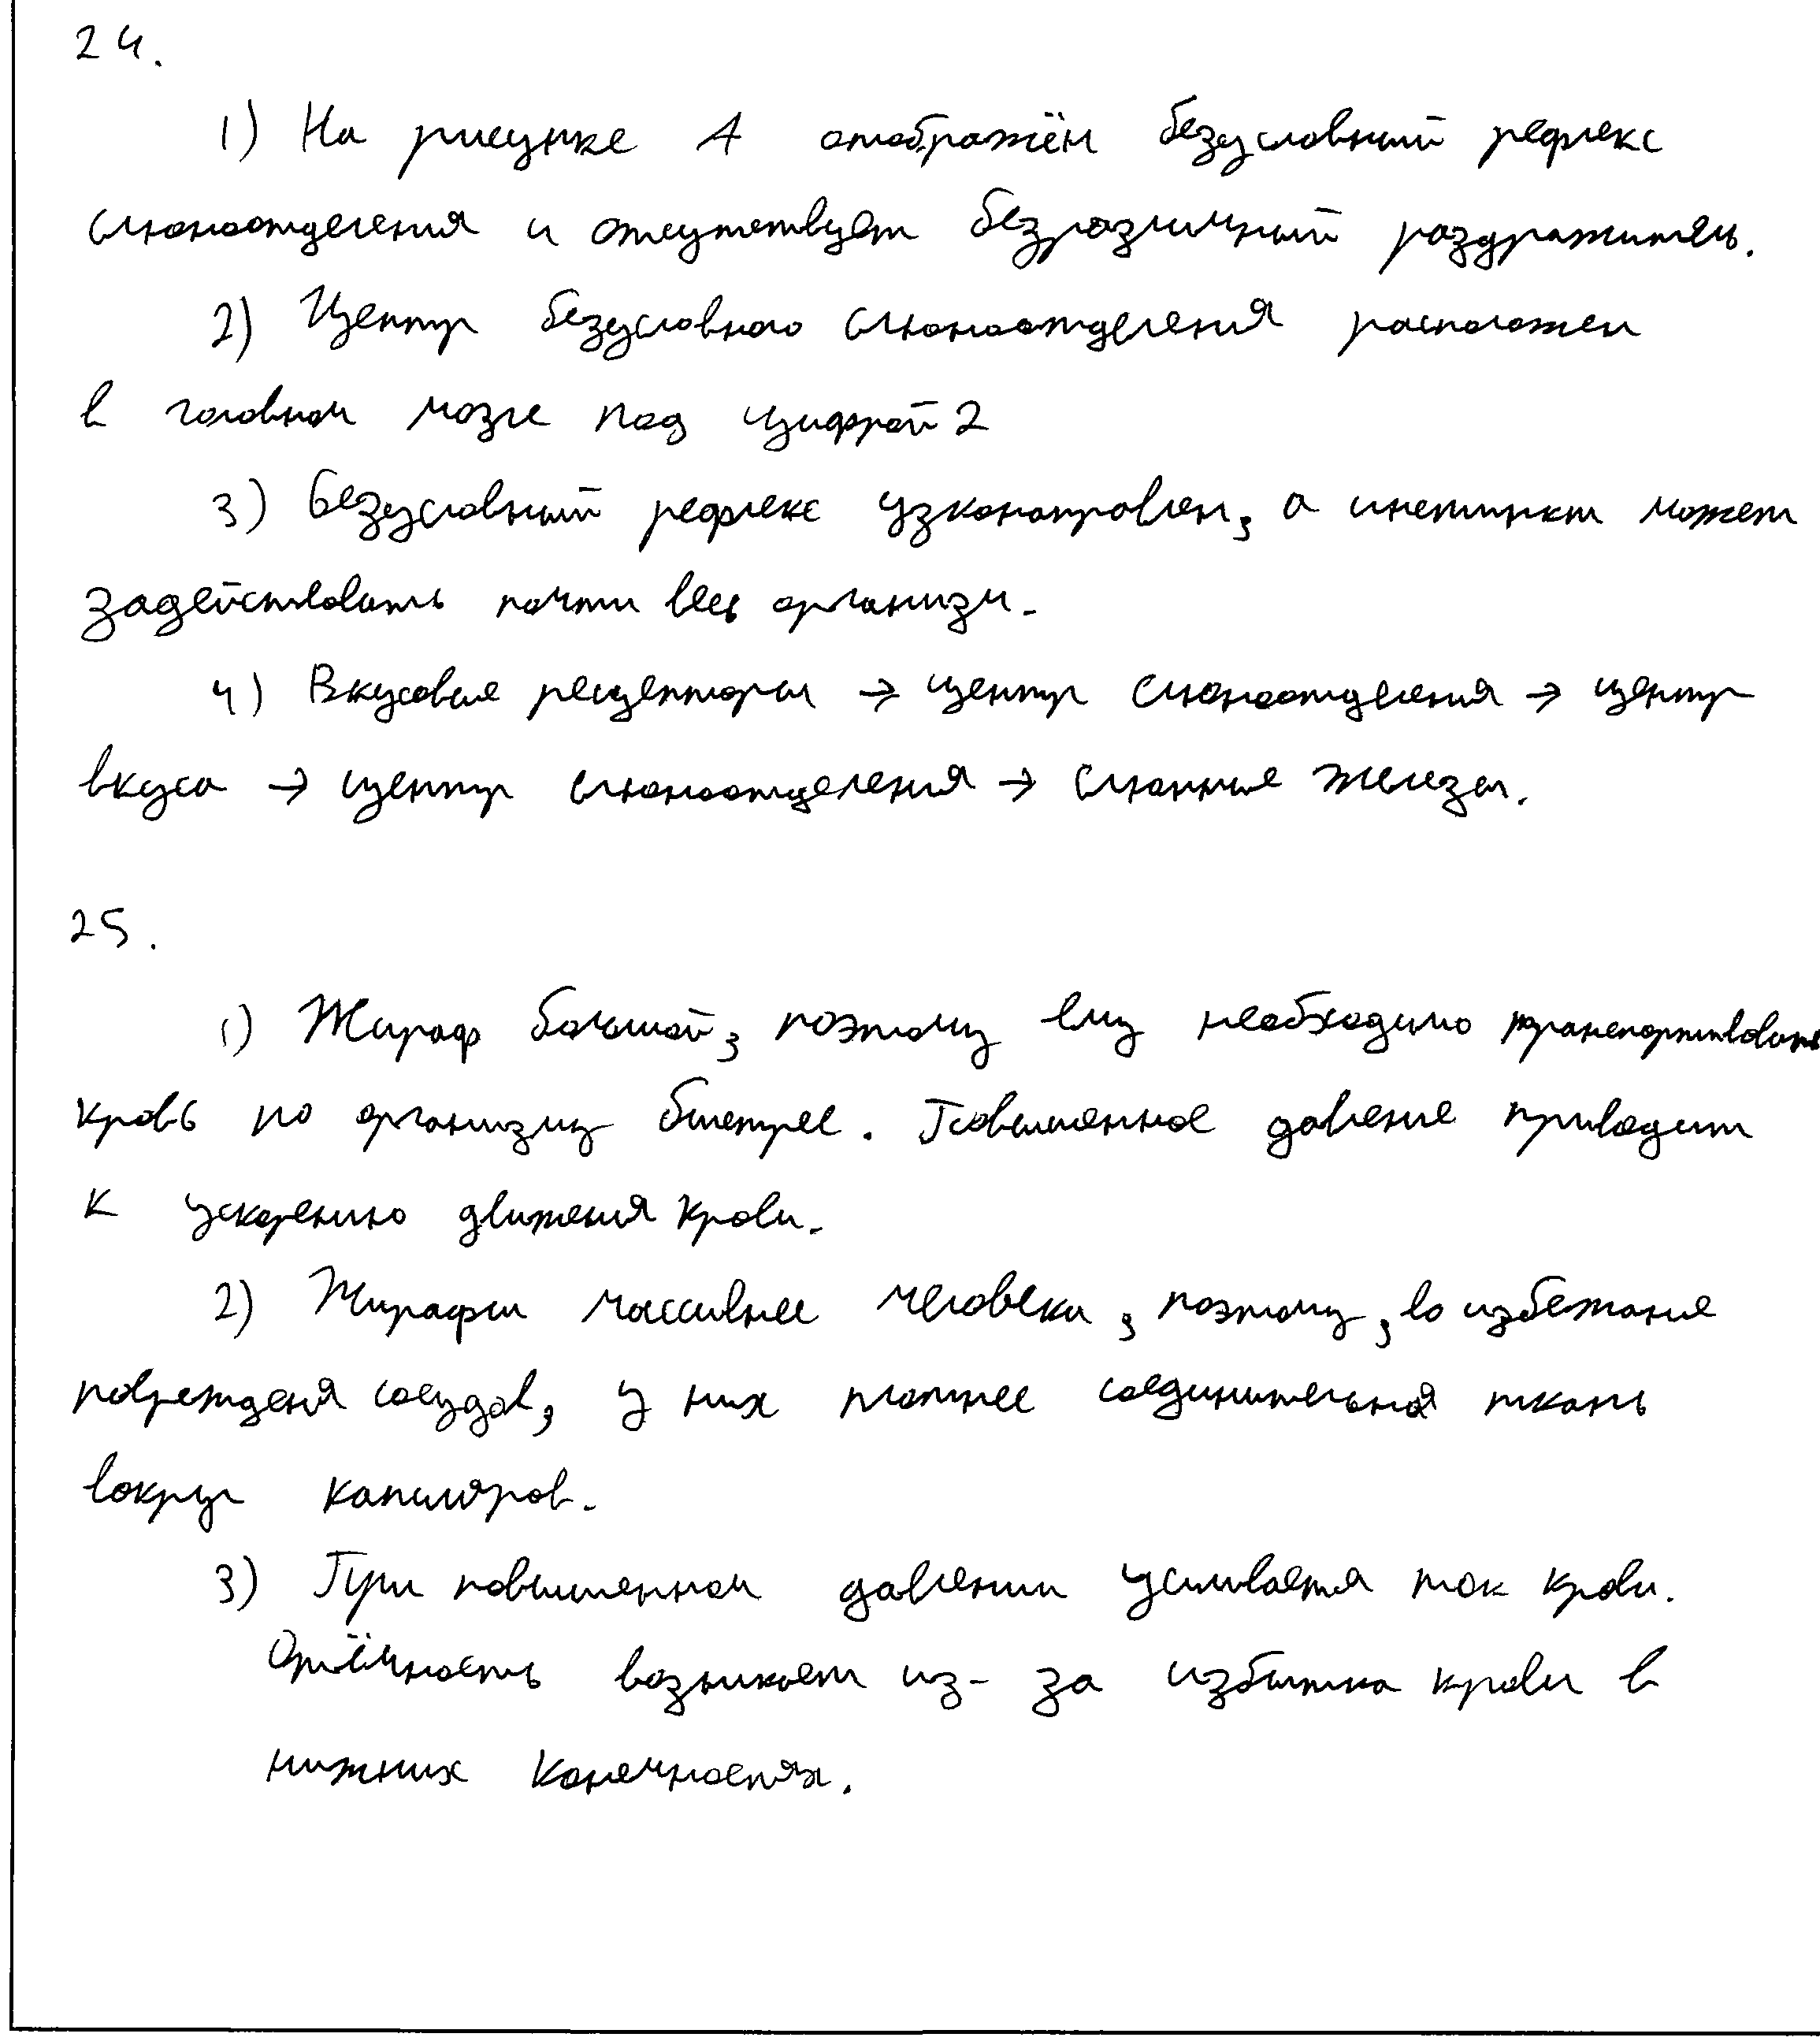 24.
1) На рисунке А отображён безусловный рефлекс
слюноотделения и отсутствует безразличный раздражитель.
2) Центр безусловного слюноотделения расположен
в головном мозге под цифрой 2
3) Безусловный рефлекс узконаправлен, а инстинкт может
задействовать почти весь организм.
4) Вкусовые рецепторы → центр слюноотделения → центр
вкуса → центр слюноотделения → слюнные железы.
25.
1) Жираф большой, поэтому ему необходимо транспортировать
кровь по организму быстрее. Повышенное давление приводит
к ускорению движения крови.
2) Жирафы массивнее человека, поэтому, во избежание
повреждения сосудов, у них плотнее соединительная ткань
вокруг капиляров.
3) При повышенном давлении усиливается ток крови.
Отёчность возникает из-за избытка крови в
нижних конечностях.